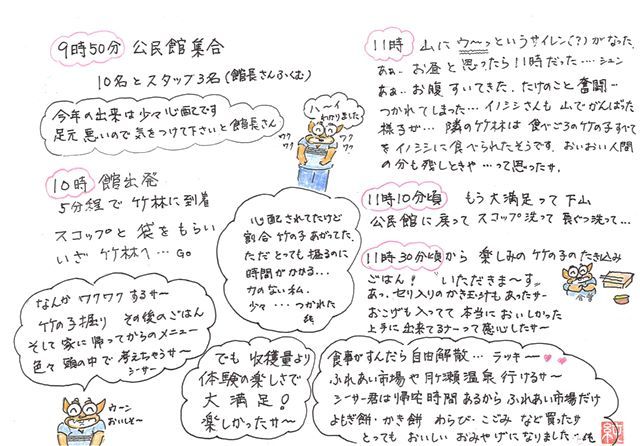 9時50分 公民館集合
10名とスタッフ3名(館長さんふくむ)
今年の出来は少々心配です
足元悪いので気をつけて下さいと館長さん
ハーイ
わかりました
ワクワク
ワクワク
10時 館出発
5分程で竹林に到着
スコップと袋をもらい
いざ竹林へ…GO
なんかワクワクするサー
竹の子掘り その後のごはん
そして家に帰ってからのメニュー
色々頭の中で考えちゃうサー
シーサー
ウーン
おいしそ〜
心配されてたけど
割合竹の子あがってた
ただとっても掘るのに
時間がかかる…
力のない私。
少々…つかれた
でも収穫量より
体験の楽しさで
大満足!
楽しかったサ〜
11時 山にウ〜っというサイレン(?)がなった。
あぁ…お昼と思ったら11時だった…シュン
あぁ…お腹すいてきた。たけのこと奮闘…
つかれてしまった…イノシシさんも山でがんばった
様子が… 隣の竹林は食べごろの竹の子すべて
をイノシシに食べられたそうです。おいおい人間
の分も残しときや…って思ったサ。
11時10分頃 もう大満足って下山
公民館に戻ってスコップ洗って長ぐつ洗って…
11時30分頃から 楽しみの竹の子のたき込み
ごはん! いただきま〜す
あっ、セリ入りのかき玉汁もあったサー
おこげも入ってて本当においしかった
上手に出来てるナーって感心したサ〜
食事がすんだら自由解散… ラッキー
ふれあい市場や月ヶ瀬温泉行けるサ〜
シーサー君は帰宅時間あるからふれあい市場だけ
よもぎ餅・かき餅 わらび・こごみ など買ったサ
とってもおいしいおみやげになりました